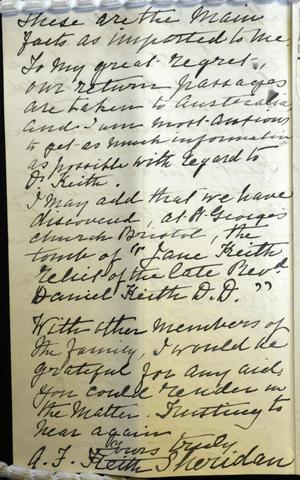 These are the main
facts as imported to me.
To my great regret,
our return passages
are taken to Australia
and I am most anxious
to get as much information
as possible with regard to
Dr Keith.
I may add that we have
discovered, at St Georges
church Bristol, the
tomb of "Jane Keith
relict of the late Revd
Daniel Keith D.D."
With other members of
the family, I would be
grateful for any aid,
you could render in
the matter. Trusting to
hear again
Yours truly
A. F. Keith Sheridan